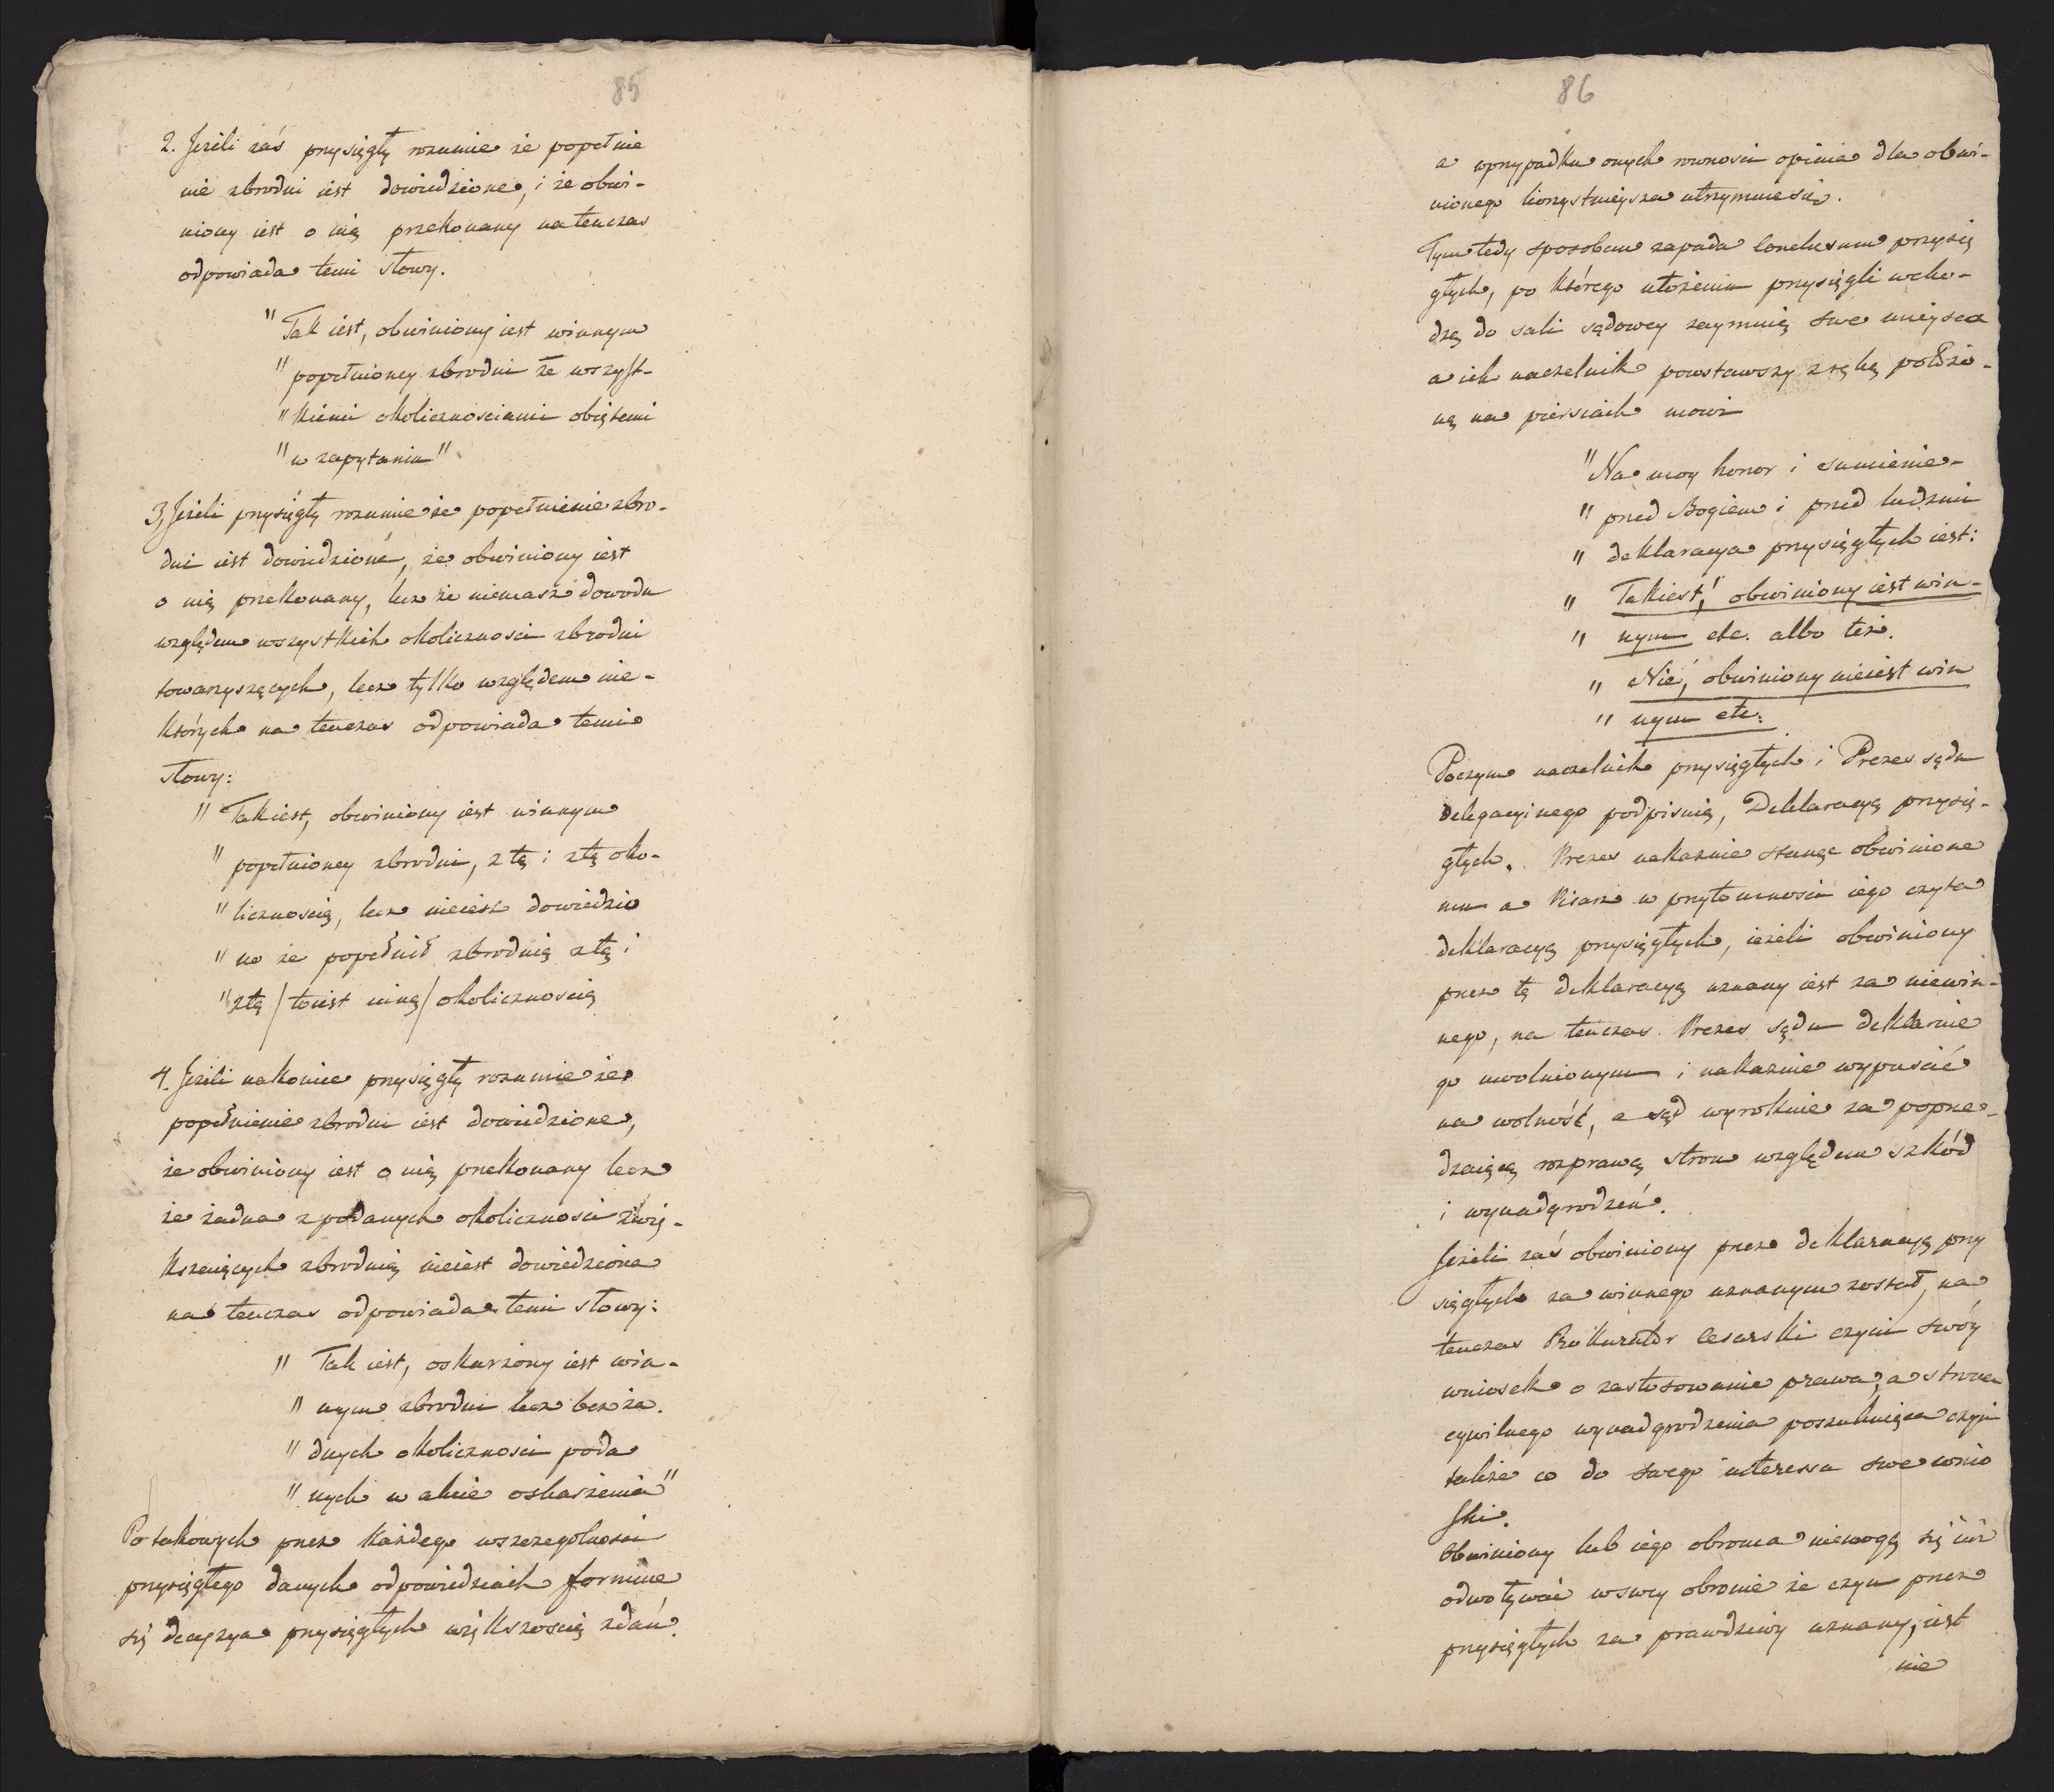 85
2. Jeżeli zaś przysięgły rozumie że popełnie
nie zbrodni iest dowiedzione, i że obwi-
niony iest o nią przekonany natenczas
odpowiada temi słowy.
" Tak iest, obwiniony iest winnym
" popełnioney zbrodni ze wszyst-
" kiemi okolicznosciami obiętemi
" w zapytaniu"
3, Jeżeli przysięgły rozumie że popełnienie zbro-
dni iest dowiedzione, że obwiniony iest
o nią przekonany, lecz że niemasz dowodu
względem wszystkich okolicznosci zbrodni
towarzyszących, lecz tylko względem nie-
których na tenczas odpowiada temi
słowy:
" Takiest, obwiniony iest winnym
" popełnioney zbrodni, z tą i ztą oko-
" licznoscią, lecz nieiest dowiedzio
" no że popełnił zbrodnię ztą i
" ztą / toiest inną / okolicznoscią
4. Jeżeli nakoniec przysięgły rozumie że
popełnienie zbrodni iest dowiedzione,
że obwiniony iest o nią przekonany lecz
że żadna z podanych okolicznosci zwię-
kszaiących zbrodnię nieiest dowiedziona
na tenczas odpowiada temi słowy:
" Tak iest, oskarżony iest win-
" nym zbrodni lecz bez ża-
" dnych okolicznosci poda
" nych w akcie oskarżenia"
Po takowych przez każdego wszczególnosci
przysięgłego danych odpowiedziach formuie
się decyzya przysięgłych większoscią zdań.
86
a wprzypadku onych rownosci opinia dla obwi-
nionego korzystnieysza utrzymuie się.
Tym tedy sposobem zapada conclusum przysię
głych, po którego ułożeniu przysięgli wcho-
dzą do sali sądowey zaymuią swe mieysca
a ich naczelnik powstawszy z ręką położo-
ną na piersiach mowi
" Na moy honor i sumienie
" przed Bogiem i przed ludzmi
" deklaracya przysięgłych iest:
" Takiest, obwiniony iest win-
" nym etc. albo też.
" Nie, obwiniony nieiest win
" nym etc:
Poczym naczelnik przysięgłych i Prezes sądu
Delegacyinego podpisuią, Deklaracyą przysię-
głych. Prezes nakazuie stanąc obwinione
mu a Pisarz w przytomnosci iego czyta
deklaracyą przysięgłych, ieżeli obwiniony
przez tę deklaracyą uznany iest za niewin-
nego, na tenczas Prezes sądu deklaruie
go uwolnionym i nakazuie wypuscić
na wolność, a sąd wyrokuie za poprze-
dzaiącą rozprawą stron względem szkód
i wynadgrodzeń.
Jeżeli zaś obwiniony przez deklaracyą przy
sięgłych za winnego uznanym został, na
tenczas Prokurator Cesarski czyni swóy
wniosek o zastosowanie prawa, a strona
cywilnego wynadgrodzenia poszukuiąca czyni
także co do swego interessu swe wnio
ski.
Obwiniony lub iego obronca niemogą się iuż
odwoływać wswey obronie że czyn przez
przysięgłych za prawdziwy uznany, iest
nie